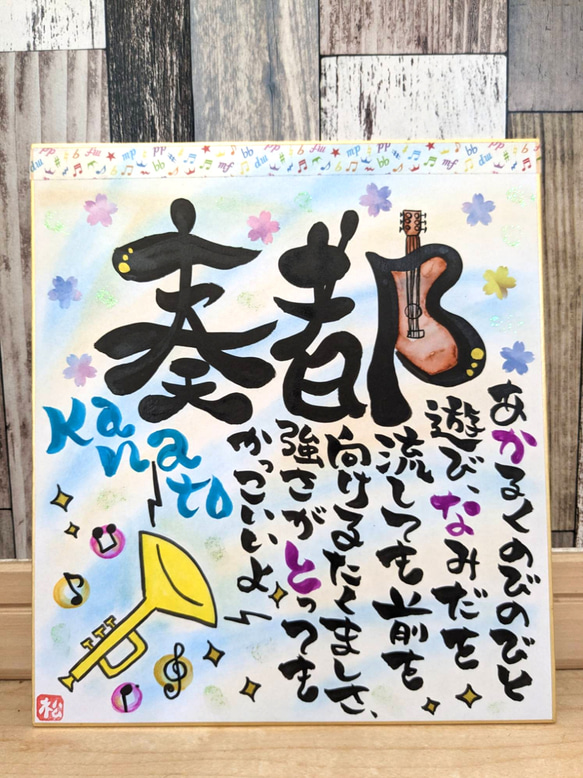 奏都
Kanato
あかるくのびのびと
遊び、なみだを
流しても前を
向けるたくましさ、
強さがとっても
かっこいいよ
松